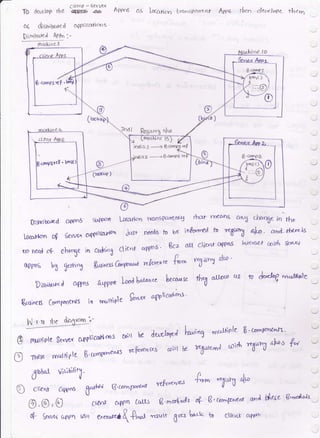 client - server
To develop the Appns as location transparent Apps then develope them
as distributed applications
Distributed Apps :-
machine 1
Client App1
B.comp1 ref
(lookup)
Machine 10
Server App1
B.comp1
(bind)
Registry s/w
(machine 15)
jndi1 → B.comp1 ref
jndi2 → B.comp2 ref
machine 2
client App2
(lookup)
Server App 2
B.comp2
(bind)
Distributed appns support Location transparency that means any change in the
location of Server application just needs to be informed to registry s/w. and there is
no need of change in coding client appns. Bcz all client appns interact with server
appns by getting Business Component reference from registry s/w.
Distributed appns support Load balance because they allow us to develop multiple
Business Components in multiple Server applications.
w.r.to the diagram :-
multiple Server applications will be developed having multiple B.components.
These multiple B.components references will be registered with registry s/w for
global visibility.
client appns. gather B.component references from registry s/w
client appn calls B.methods of B.component and these B.methods
of Server appn will execute & final result goes back to client appn